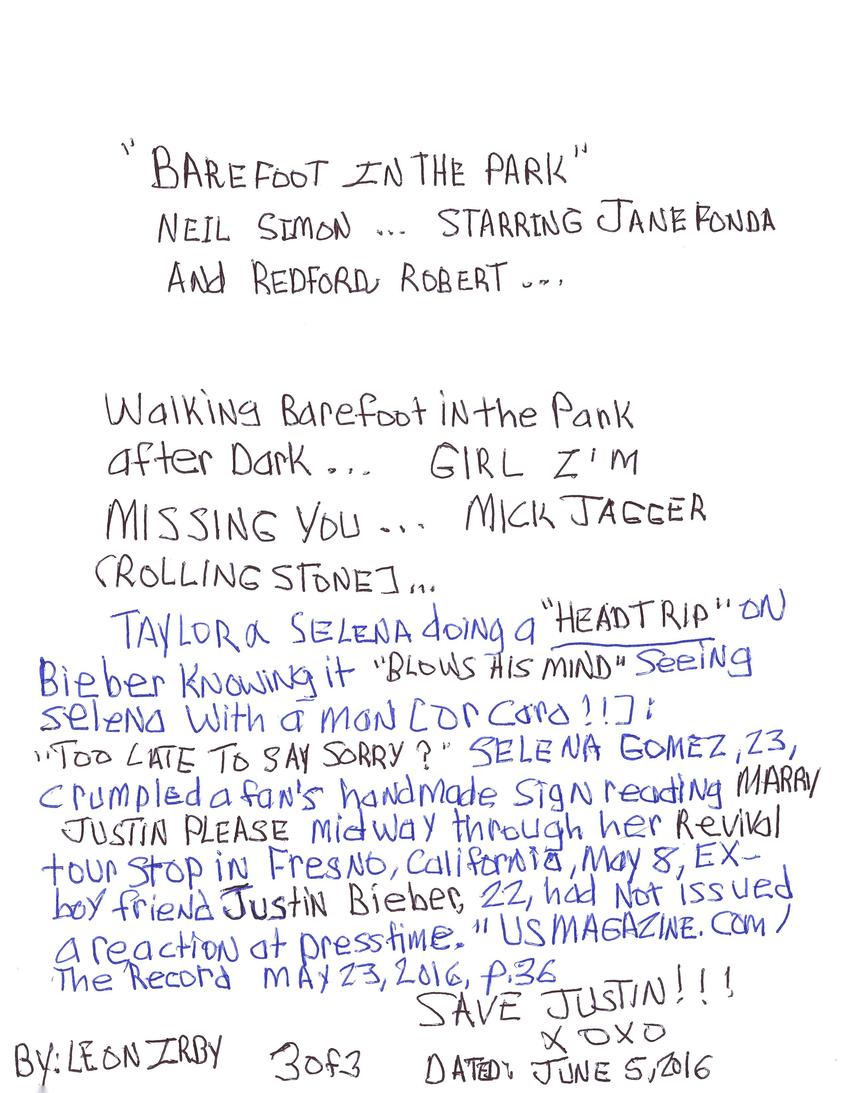 "BAREFOOT IN THE PARK"
NEIL SIMON ... STARRING JANE FONDA
ANd REDFORD, ROBERT ....
Walking Barefoot in the Pank
after Dark ... GIRL I'M
MISSING YOU ... MICK JAGGER
(ROLLING STONE] ...
TAYLOR & SELENA doing a "HEADTRIP" ON
Bieber KNowing it "BLOWS HIS MIND" Seeing
selena With a man [or Cara!!]:
"TOO LATE TO SAY SORRY?" SELENA GOMEZ, 23,
crumpled a fan's handmade sign reading MARRY
JUSTIN PLEASE midway through her Revival
tour stop in Fresno, California, May 8, EX-
boyfriend Justin Bieber, 22, had Not issued
a reaction at presstime." USMAGAZINE.COM/
The Record MAY 23, 2016, P.36
SAVE JUSTIN!!!
XOXO
BY: LEON IRBY 3 of 3 DATED: JUNE 5, 2016